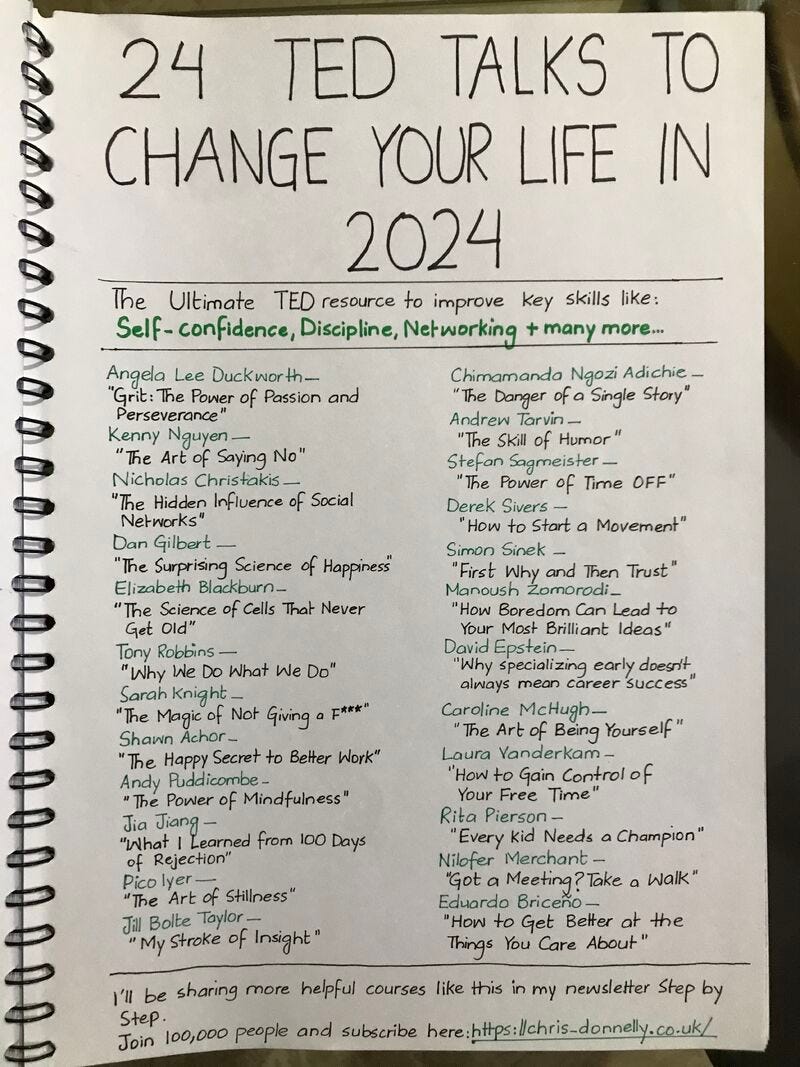 24 TED TALKS TO
CHANGE YOUR LIFE IN
2024
The Ultimate TED resource to improve key skills like:
Self-confidence, Discipline, Networking + many more...
Angela Lee Duckworth—
"Grit: The Power of Passion and
Perseverance"
Kenny Nguyen —
"The Art of Saying No"
Nicholas Christakis —
"The Hidden Influence of Social
Networks"
Dan Gilbert —
"The Surprising Science of Happiness"
Elizabeth Blackburn—
"The Science of Cells That Never
Get Old"
Tony Robbins —
"Why We Do What We Do"
Sarah Knight —
"The Magic of Not Giving a F***"
Shawn Achor —
"The Happy Secret to Better Work"
Andy Puddicombe —
"The Power of Mindfulness"
Jia Jiang —
"What I Learned from 100 Days
of Rejection"
Pico Iyer —
"The Art of Stillness"
Jill Bolte Taylor —
"My Stroke of Insight"
Chimamanda Ngozi Adichie —
"The Danger of a Single Story"
Andrew Tarvin —
"The Skill of Humor"
Stefan Sagmeister —
"The Power of Time OFF"
Derek Sivers —
"How to Start a Movement"
Simon Sinek —
"First Why and Then Trust"
Manoush Zomorodi—
"How Boredom Can Lead to
Your Most Brilliant Ideas"
David Epstein—
"Why specializing early doesn't
always mean career success"
Caroline McHugh—
"The Art of Being Yourself"
Laura Vanderkam —
"How to Gain Control of
Your Free Time"
Rita Pierson —
"Every Kid Needs a Champion"
Nilofer Merchant —
"Got a Meeting? Take a Walk"
Eduardo Briceño—
"How to Get Better at the
Things You Care About"
I'll be sharing more helpful courses like this in my newsletter Step by
Step.
Join 100,000 people and subscribe here: https://chris-donnelly.co.uk/